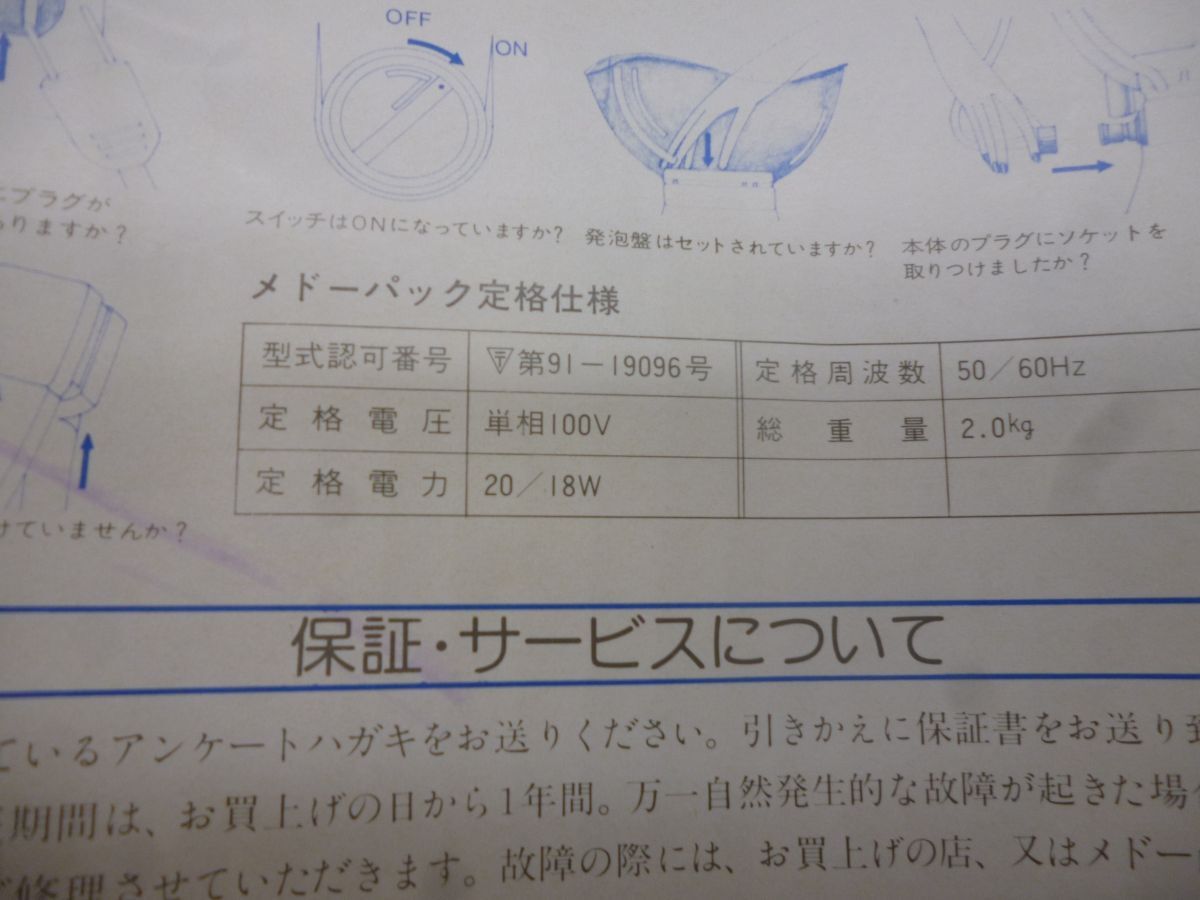 OFF
ON
プラグが
りますか?
スイッチはONになっていますか?
発泡盤はセットされていますか?
本体のプラグにソケットを
取りつけましたか?
メドーパック定格仕様
型式認可番号 第91-19096号 定格周波数 50/60Hz
定格電圧 単相100V 総重量 2.0kg
定格電力 20/18W
けていませんか?
保証・サービスについて
ているアンケートハガキをお送りください。引きかえに保証書をお送り
期間は、お買上げの日から1年間。万一自然発生的な故障が起きた場
修理させていただきます。故障の際には、お買上げの店、又はメドー